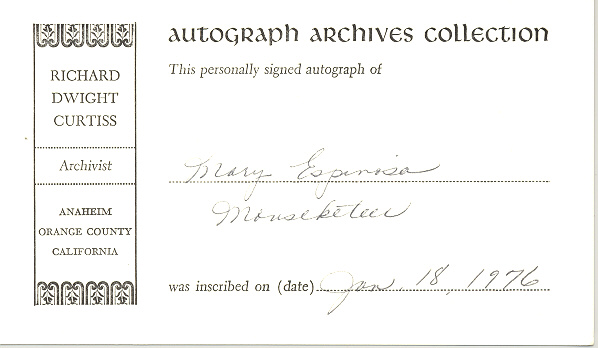 RICHARD
DWIGHT
CURTISS
Archivist
ANAHEIM
ORANGE COUNTY
CALIFORNIA
autograph archives collection
This personally signed autograph of
Mary Espinosa
Mouseketeer
was inscribed on (date) Jan. 18, 1976